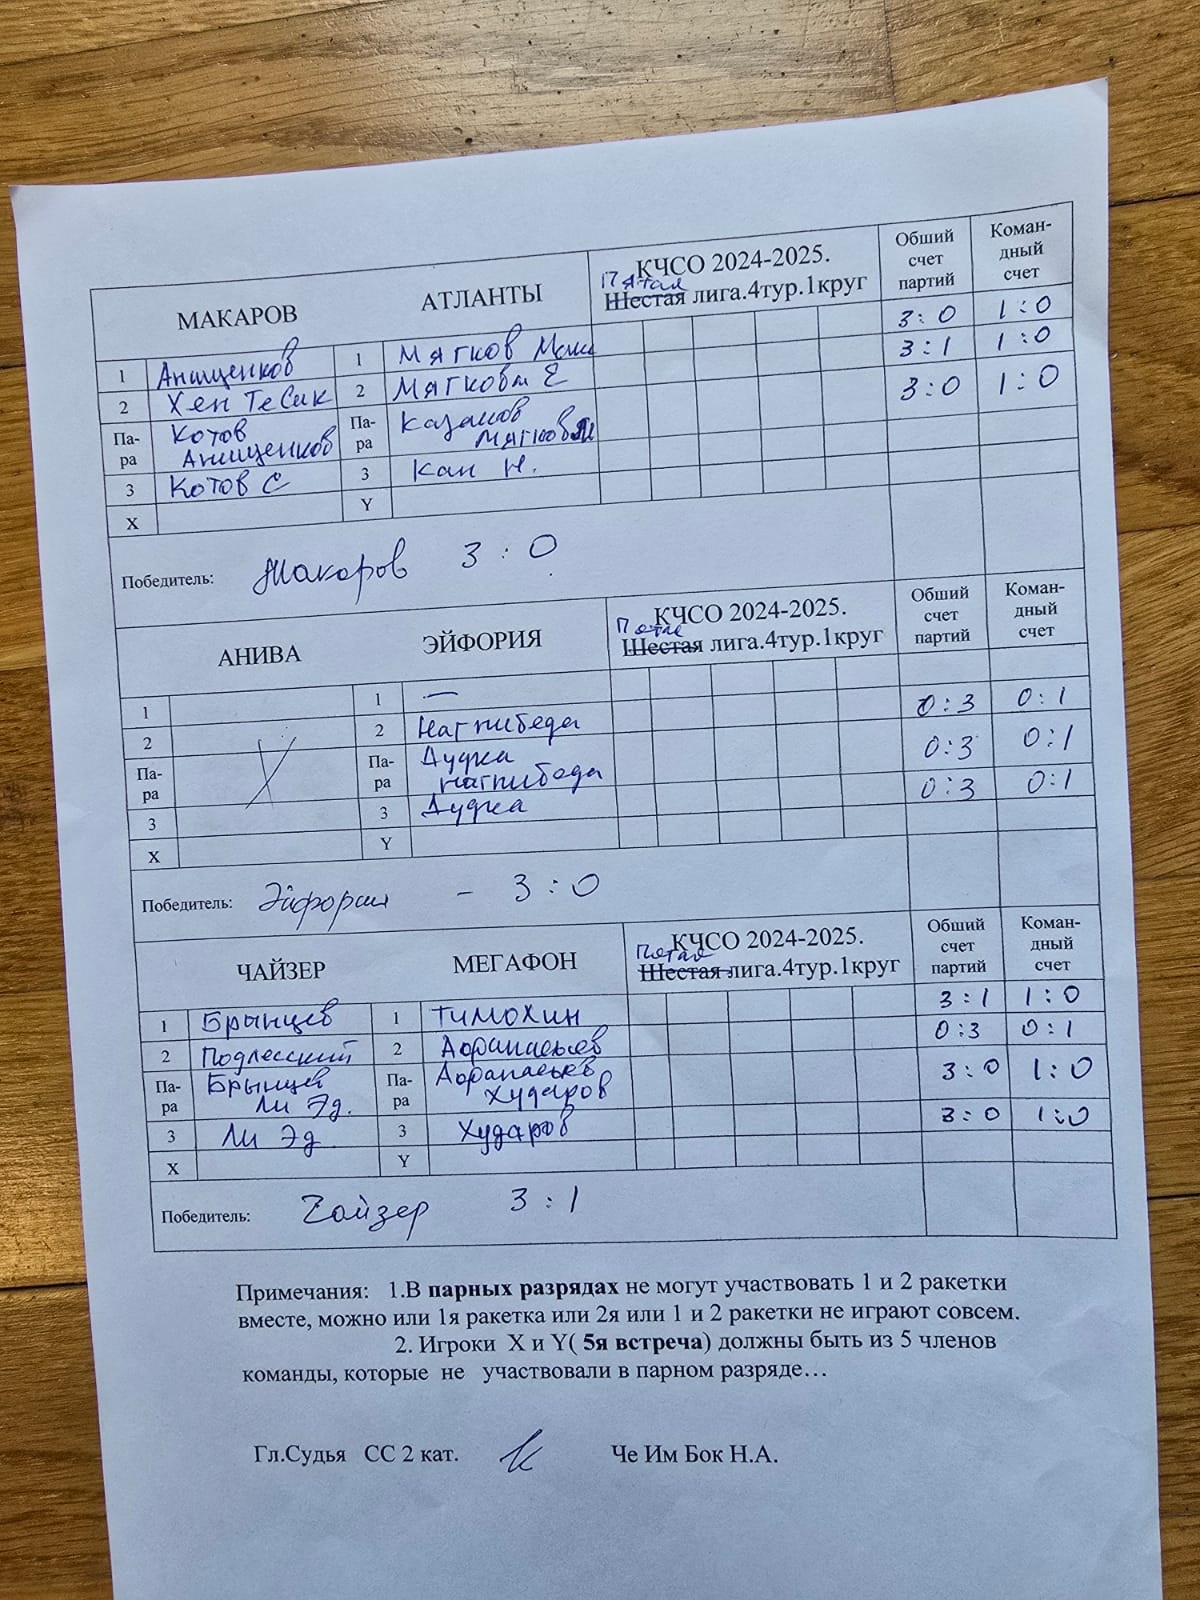 МАКАРОВ АТЛАНТЫ КЧСО 2024-2025. Общий счет партий Коман-дный счет
Пятая
Шестая лига.4тур.1круг
1 Анищенков 1 Мягков 3:0 1:0
2 Хен Те Сик 2 Мягкова Е 3:1 1:0
Па-ра Котов Анищенков Па-ра Казаков Мягков 3:0 1:0
3 Котов С 3 Кан Н.
X Y
Победитель: Макаров 3 : 0
АНИВА ЭЙФОРИЯ КЧСО 2024-2025. Общий счет партий Коман-дный счет
Шестая лига.4тур.1круг
1 1 —
2 2 Нагнибеда 0:3 0:1
Па-ра Па-ра Дудка Нагнибеда 0:3 0:1
3 3 Дудка 0:3 0:1
X Y
Победитель: Эйфория - 3 : 0
ЧАЙЗЕР МЕГАФОН КЧСО 2024-2025. Общий счет партий Коман-дный счет
Пятая
Шестая лига.4тур.1круг
1 Брынцев 1 Тимохин 3:1 1:0
2 Подлесский 2 Афанасьев 0:3 0:1
Па-ра Брынцев Ли Эд. Па-ра Афанасьев Худяров 3:0 1:0
3 Ли Эд 3 Худяров 3:0 1:0
X Y
Победитель: Чайзер 3 : 1
Примечания: 1.В парных разрядах не могут участвовать 1 и 2 ракетки
вместе, можно или 1я ракетка или 2я или 1 и 2 ракетки не играют совсем.
2. Игроки X и Y( 5я встреча) должны быть из 5 членов
команды, которые не участвовали в парном разряде…
Гл.Судья СС 2 кат. Че Им Бок Н.А.